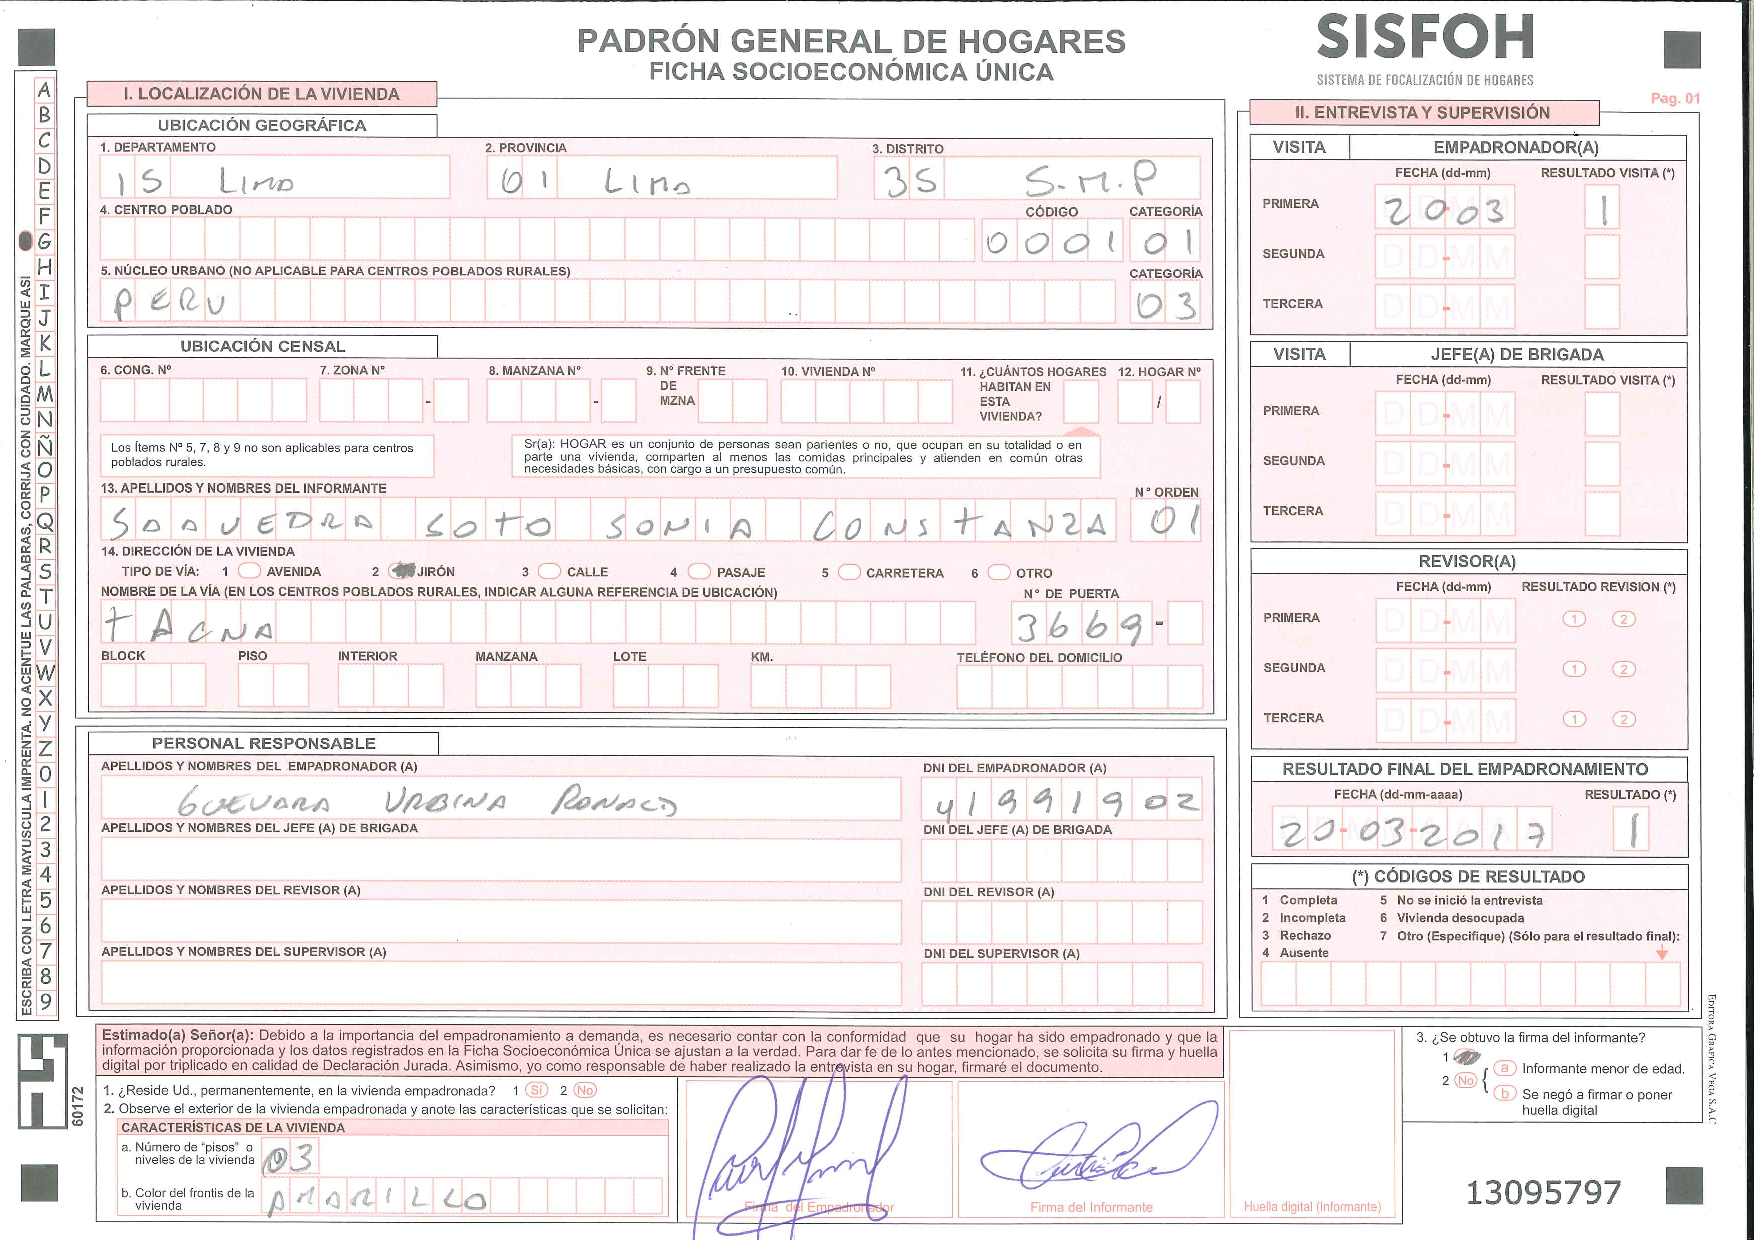 PADRÓN GENERAL DE HOGARES
FICHA SOCIOECONÓMICA ÚNICA
SISFOH
SISTEMA DE FOCALIZACIÓN DE HOGARES
Pag. 01
ESCRIBA CON LETRA MAYUSCULA IMPRENTA. NO ACENTUE LAS PALABRAS, CORRIJA CON CUIDADO. MARQUE ASI
A B C D E F G H I J K L M N Ñ O P Q R S T U V W X Y Z 0 1 2 3 4 5 6 7 8 9
I. LOCALIZACIÓN DE LA VIVIENDA
UBICACIÓN GEOGRÁFICA
1. DEPARTAMENTO 2. PROVINCIA 3. DISTRITO
15 LIMA 01 LIMA 35 S.M.P
4. CENTRO POBLADO CÓDIGO CATEGORÍA
0001 01
5. NÚCLEO URBANO (NO APLICABLE PARA CENTROS POBLADOS RURALES) CATEGORÍA
PERU 03
UBICACIÓN CENSAL
6. CONG. Nº 7. ZONA Nº 8. MANZANA Nº 9. Nº FRENTE DE MZNA 10. VIVIENDA Nº 11. ¿CUÁNTOS HOGARES HABITAN EN ESTA VIVIENDA? 12. HOGAR Nº
- - /
Los Ítems Nº 5, 7, 8 y 9 no son aplicables para centros
poblados rurales.
Sr(a): HOGAR es un conjunto de personas sean parientes o no, que ocupan en su totalidad o en
parte una vivienda, comparten al menos las comidas principales y atienden en común otras
necesidades básicas, con cargo a un presupuesto común.
13. APELLIDOS Y NOMBRES DEL INFORMANTE Nº ORDEN
SAAVEDRA SOTO SONIA CONSTANZA 01
14. DIRECCIÓN DE LA VIVIENDA
TIPO DE VÍA: 1 AVENIDA 2 JIRÓN 3 CALLE 4 PASAJE 5 CARRETERA 6 OTRO
NOMBRE DE LA VÍA (EN LOS CENTROS POBLADOS RURALES, INDICAR ALGUNA REFERENCIA DE UBICACIÓN) Nº DE PUERTA
TACNA 3669-
BLOCK PISO INTERIOR MANZANA LOTE KM. TELÉFONO DEL DOMICILIO
PERSONAL RESPONSABLE
APELLIDOS Y NOMBRES DEL EMPADRONADOR (A) DNI DEL EMPADRONADOR (A)
GUEVARA URBINA RONALD 41991902
APELLIDOS Y NOMBRES DEL JEFE (A) DE BRIGADA DNI DEL JEFE (A) DE BRIGADA
APELLIDOS Y NOMBRES DEL REVISOR (A) DNI DEL REVISOR (A)
APELLIDOS Y NOMBRES DEL SUPERVISOR (A) DNI DEL SUPERVISOR (A)
II. ENTREVISTA Y SUPERVISIÓN
VISITA EMPADRONADOR(A)
FECHA (dd-mm) RESULTADO VISITA (*)
PRIMERA 20-03 1
SEGUNDA DD-MM
TERCERA DD-MM
VISITA JEFE(A) DE BRIGADA
FECHA (dd-mm) RESULTADO VISITA (*)
PRIMERA DD-MM
SEGUNDA DD-MM
TERCERA DD-MM
REVISOR(A)
FECHA (dd-mm) RESULTADO REVISION (*)
PRIMERA DD-MM 1 2
SEGUNDA DD-MM 1 2
TERCERA DD-MM 1 2
RESULTADO FINAL DEL EMPADRONAMIENTO
FECHA (dd-mm-aaaa) RESULTADO (*)
20-03-2017 1
(*) CÓDIGOS DE RESULTADO
1 Completa 5 No se inició la entrevista
2 Incompleta 6 Vivienda desocupada
3 Rechazo 7 Otro (Especifique) (Sólo para el resultado final):
4 Ausente
Estimado(a) Señor(a): Debido a la importancia del empadronamiento a demanda, es necesario contar con la conformidad que su hogar ha sido empadronado y que la
información proporcionada y los datos registrados en la Ficha Socioeconómica Única se ajustan a la verdad. Para dar fe de lo antes mencionado, se solicita su firma y huella
digital por triplicado en calidad de Declaración Jurada. Asimismo, yo como responsable de haber realizado la entrevista en su hogar, firmaré el documento.
1. ¿Reside Ud., permanentemente, en la vivienda empadronada? 1 Sí 2 No
2. Observe el exterior de la vivienda empadronada y anote las características que se solicitan:
CARACTERÍSTICAS DE LA VIVIENDA
a. Número de "pisos" o
niveles de la vivienda 03
b. Color del frontis de la
vivienda AMARILLO
Firma del Empadronador
Firma del Informante
Huella digital (Informante)
3. ¿Se obtuvo la firma del informante?
1
2 No
a Informante menor de edad.
b Se negó a firmar o poner
huella digital
13095797
60172
EDITORA GRAFICA VEGA S.A.C